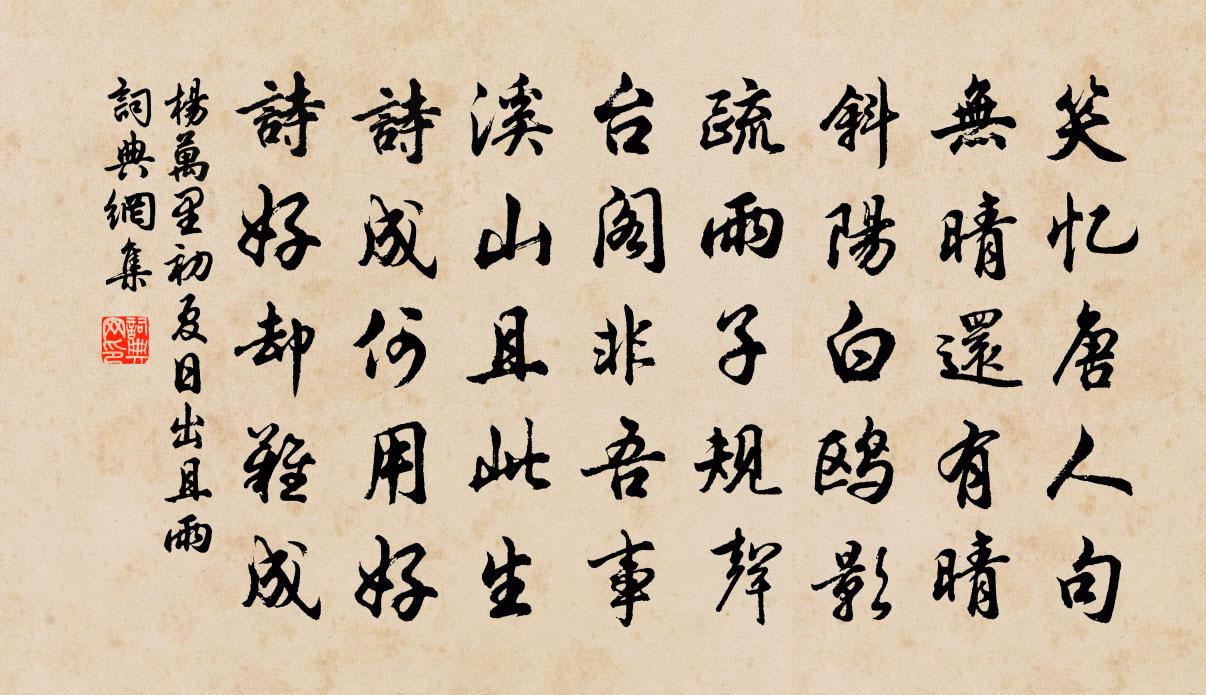 笑忆唐人句
無晴還有晴
斜陽白鸥影
疏雨子規聲
台阁非吾事
溪山且此生
詩成何用好
詩好却難成
楊萬里初夏日出且雨
詞典網集
詞典网印